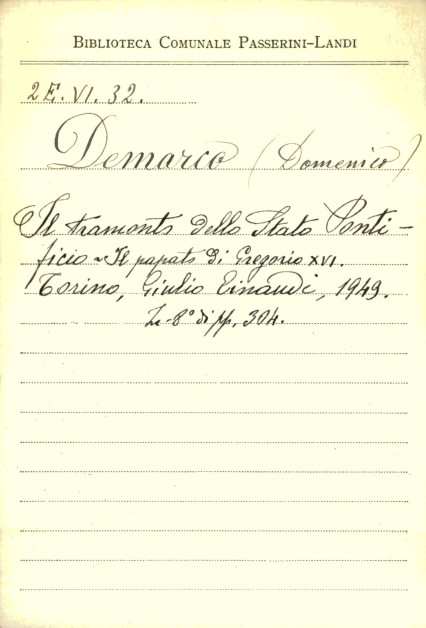 BIBLIOTECA COMUNALE PASSERINI-LANDI
2E.VI.32.
Demarco (Domenico)
Il tramonto dello Stato Ponti-
ficio ~ Il papato di Gregorio XVI.
Torino, Giulio Einaudi, 1949.
In-8° di pp. 304.